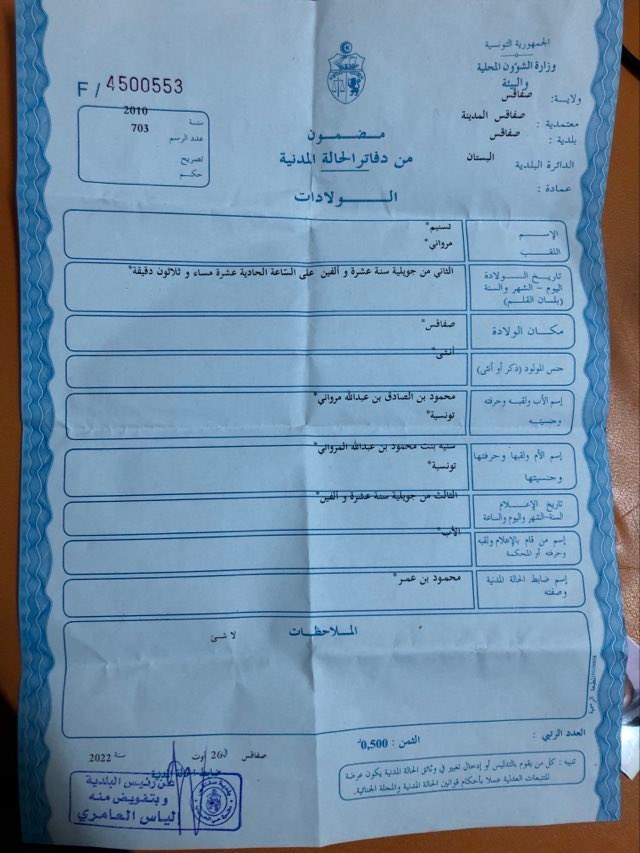 الجمهورية التونسية
وزارة الشؤون المحلية
والبيئة
ولاية: صفاقس
معتمدية : صفاقس المدينة
بلدية : صفاقس
الدائرة البلدية البستان
عمادة :
F / 4500553
سنة 2010
عدد الرسم 703
تصريح
حكم
مضمون
من دفاتر الحالة المدنية
الولادات
الإسم تسنيم*
اللقب مرواني*
تاريخ الولادة الثاني من جويلية سنة عشرة و ألفين على الساعة الحادية عشرة مساء و ثلاثون دقيقة*
اليوم - الشهر والسنة
(بلسان القلم)
مكان الولادة صفاقس*
جنس المولود (ذكر أو أنثى) أنثى*
إسم الأب ولقبه وحرفته محمود بن الصادق بن عبدالله مرواني*
وجنسيته تونسية*
إسم الأم ولقبها وحرفتها سنية بنت محمود بن عبدالله المرواني*
وجنسيتها تونسية*
تاريخ الإعلام الثالث من جويلية سنة عشرة و ألفين*
السنة-الشهر واليوم والساعة
إسم من قام بالإعلام ولقبه الأب*
وحرفته أو المحكمة
إسم ضابط الحالة المدنية محمود بن عمر*
وصفته
الملاحظات
لا شئ
المطبعة الرسمية
العدد الرتبي :
الثمن : 0,500د
تنبيه : كل من يقوم بالتدليس أو إدخال تغيير في وثائق الحالة المدنية يكون عرضة
للتتبعات العدلية عملا بأحكام قوانين الحالة المدنية والمجلة الجنائية.
صفاقس في 26 أوت سنة 2022
ضابط الحالة المدنية
عن رئيس البلدية
و بتفويض منه
لياس العامري